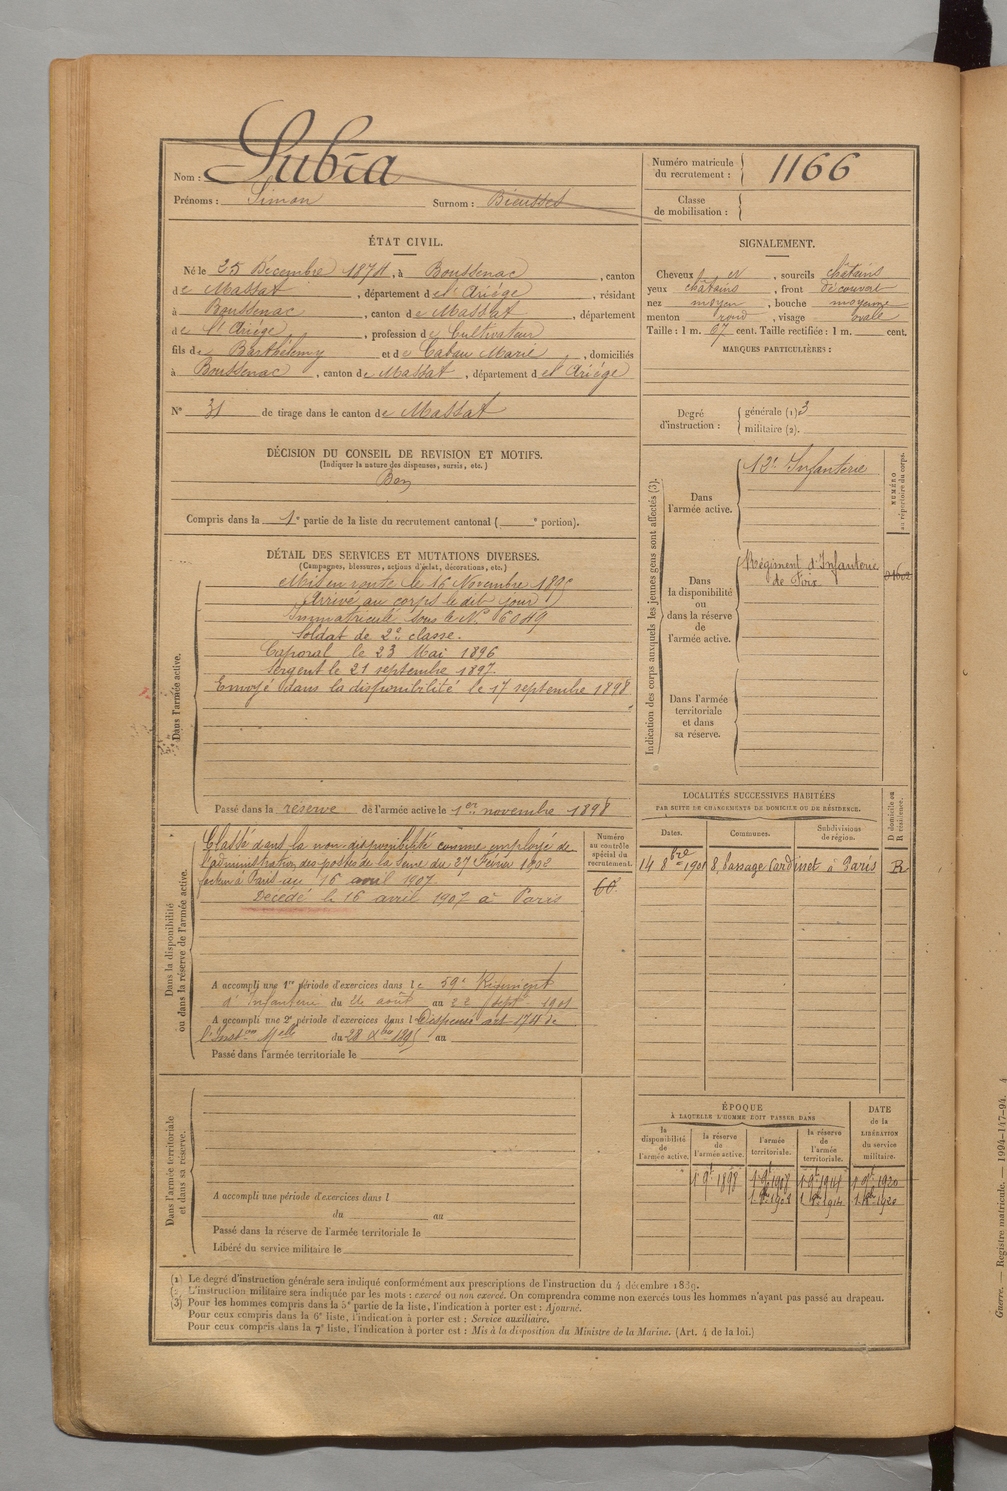 Nom : Lubra
Prénoms : Simon Surnom : Bieusses
Numéro matricule du recrutement : 1166
Classe de mobilisation :
ÉTAT CIVIL.
Né le 25 Décembre 1874, à Boussenac, canton
de Massat, département de l'Ariège, résidant
à Boussenac, canton de Massat, département
de l'Ariège, profession de Cultivateur
fils de Barthélemy et de Catau Marie, domiciliés
à Boussenac, canton de Massat, département de l'Ariège
N° 31 de tirage dans le canton de Massat
SIGNALEMENT.
Cheveux et, sourcils châtains
yeux châtains, front découvert
nez moyen, bouche moyenne
menton rond, visage ovale
Taille : 1 m. 67 cent. Taille rectifiée : 1 m. cent.
MARQUES PARTICULIÈRES :
Degré d'instruction : générale (1) 3
militaire (2).
DÉCISION DU CONSEIL DE REVISION ET MOTIFS.
(Indiquer la nature des dispenses, sursis, etc.)
Bon
Compris dans la 1e partie de la liste du recrutement cantonal ( e portion).
DÉTAIL DES SERVICES ET MUTATIONS DIVERSES.
(Campagnes, blessures, actions d'éclat, décorations, etc.)
Dans l'armée active.
Mis en route le 16 Novembre 1895
Arrivé au corps le dit jour
Immatriculé sous le N° 6049
Soldat de 2e classe.
Caporal le 23 Mai 1896
Sergent le 21 septembre 1897.
Envoyé dans la disponibilité le 17 septembre 1898
Passé dans la reserve de l'armée active le 1er novembre 1898
Indication des corps auxquels les jeunes gens sont affectés (3).
NUMÉRO au répertoire du corps.
Dans l'armée active.
12e Infanterie
Dans la disponibilité ou dans la réserve de l'armée active.
Régiment d'Infanterie
de Foix
Dans l'armée territoriale et dans sa réserve.
Dans la disponibilité ou dans la réserve de l'armée active.
Classé dans la non disponibilité comme employé de
l'administration des postes de la Seine du 27 Février 1902
facteur à Paris au 16 avril 1907
Décédé le 16 avril 1907 à Paris
Numéro au contrôle spécial du recrutement.
60
A accompli une 1re période d'exercices dans le 59e Régiment
d'Infanterie du 26 août au 22 sept 1901
A accompli une 2e période d'exercices dans l Dispense art 174 de
l'Inston Melle du 28 Xbre 1895 au
Passé dans l'armée territoriale le
LOCALITÉS SUCCESSIVES HABITÉES
PAR SUITE DE CHANGEMENTS DE DOMICILE OU DE RÉSIDENCE.
Dates. Communes. Subdivisions de région. D domicile ou R résidence.
14 8bre 1901 8, Passage Cardinet à Paris R
Dans l'armée territoriale et dans sa réserve.
A accompli une période d'exercices dans l
du au
Passé dans la réserve de l'armée territoriale le
Libéré du service militaire le
ÉPOQUE
À LAQUELLE L'HOMME DOIT PASSER DANS
la disponibilité de l'armée active.
la réserve de l'armée active.
l'armée territoriale.
la réserve de l'armée territoriale.
DATE de la LIBÉRATION du service militaire.
1 9bre 1898 1 9bre 1908 1 9bre 1914 1 9bre 1920
(1) Le degré d'instruction générale sera indiqué conformément aux prescriptions de l'instruction du 4 décembre 1889.
(2) L'instruction militaire sera indiquée par les mots : exercé ou non exercé. On comprendra comme non exercés tous les hommes n'ayant pas passé au drapeau.
(3) Pour les hommes compris dans la 5e partie de la liste, l'indication à porter est : Ajourné.
Pour ceux compris dans la 6e liste, l'indication à porter est : Service auxiliaire.
Pour ceux compris dans la 7e liste, l'indication à porter est : Mis à la disposition du Ministre de la Marine. (Art. 4 de la loi.)
Guerre. Registre matricule. — 1994-147-94.